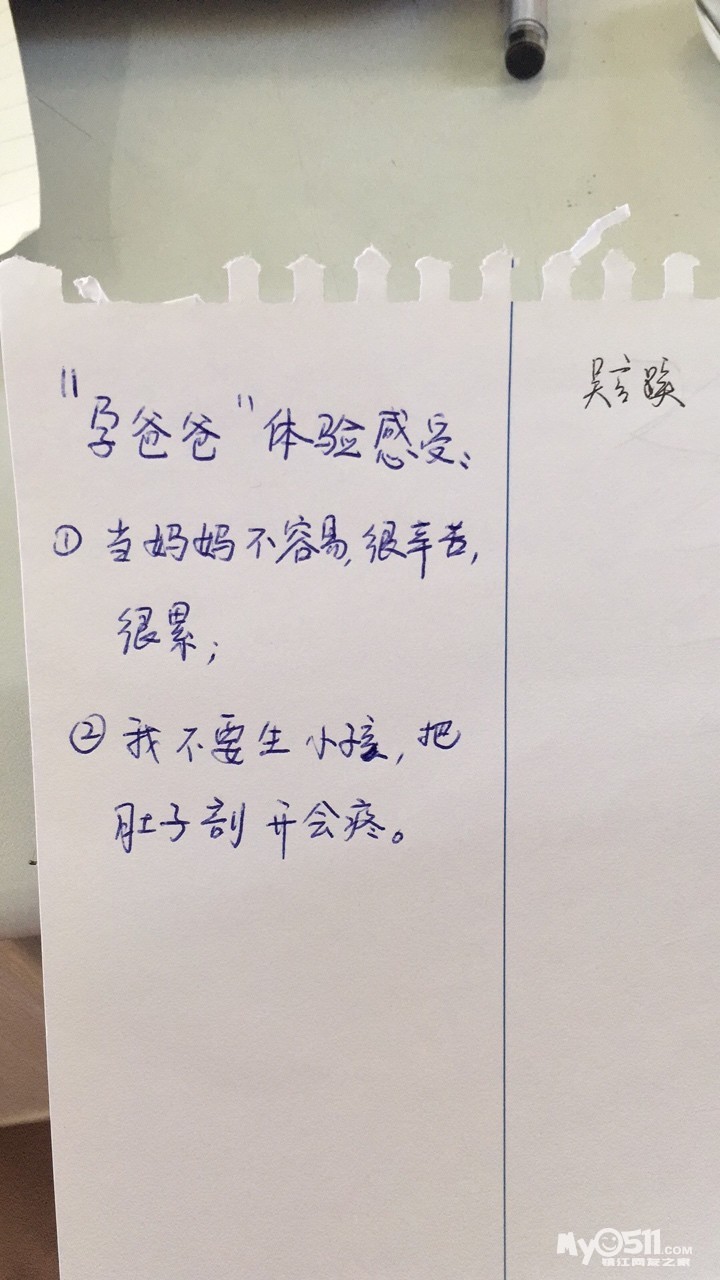 "孕爸爸"体验感受:
①当妈妈不容易,很辛苦,
很累;
②我不要生小孩,把
肚子剖开会疼。
My0511.COM
镇江网友之家